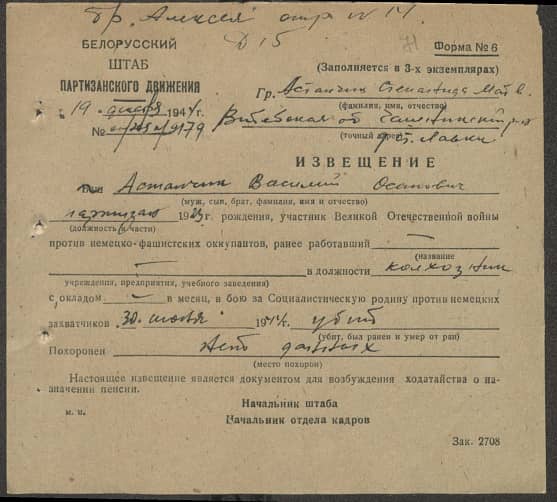 бр. Алексея отр. № 14.
Д 15
БЕЛОРУССКИЙ
ШТАБ
ПАРТИЗАНСКОГО ДВИЖЕНИЯ
19 1944г.
№ 9179
Форма № 6
(Заполняется в 3-х экземплярах)
Гр. Астапчик Степанида
(фамилия, имя, отчество)
Витебская об.
(точный адрес) Лавки
ИЗВЕЩЕНИЕ
Ваш Астапчик Василий Осипович
(муж, сын, брат, фамилия, имя и отчество)
партизан 1923г. рождения, участник Великой Отечественной войны
(должность и части)
против немецко-фашистских оккупантов, ранее работавший —
(название
— в должности колхозник
учреждения, предприятия, учебного заведения)
с окладом — в месяц, в бою за Социалистическую родину против немецких
захватчиков 30 1944г. убит
(убит, был ранен и умер от ран)
Похоронен нет данных
(место похорон)
Настоящее извещение является документом для возбуждения ходатайства о на-
значении пенсии.
Начальник штаба
м. п.
Начальник отдела кадров
Зак. 2708